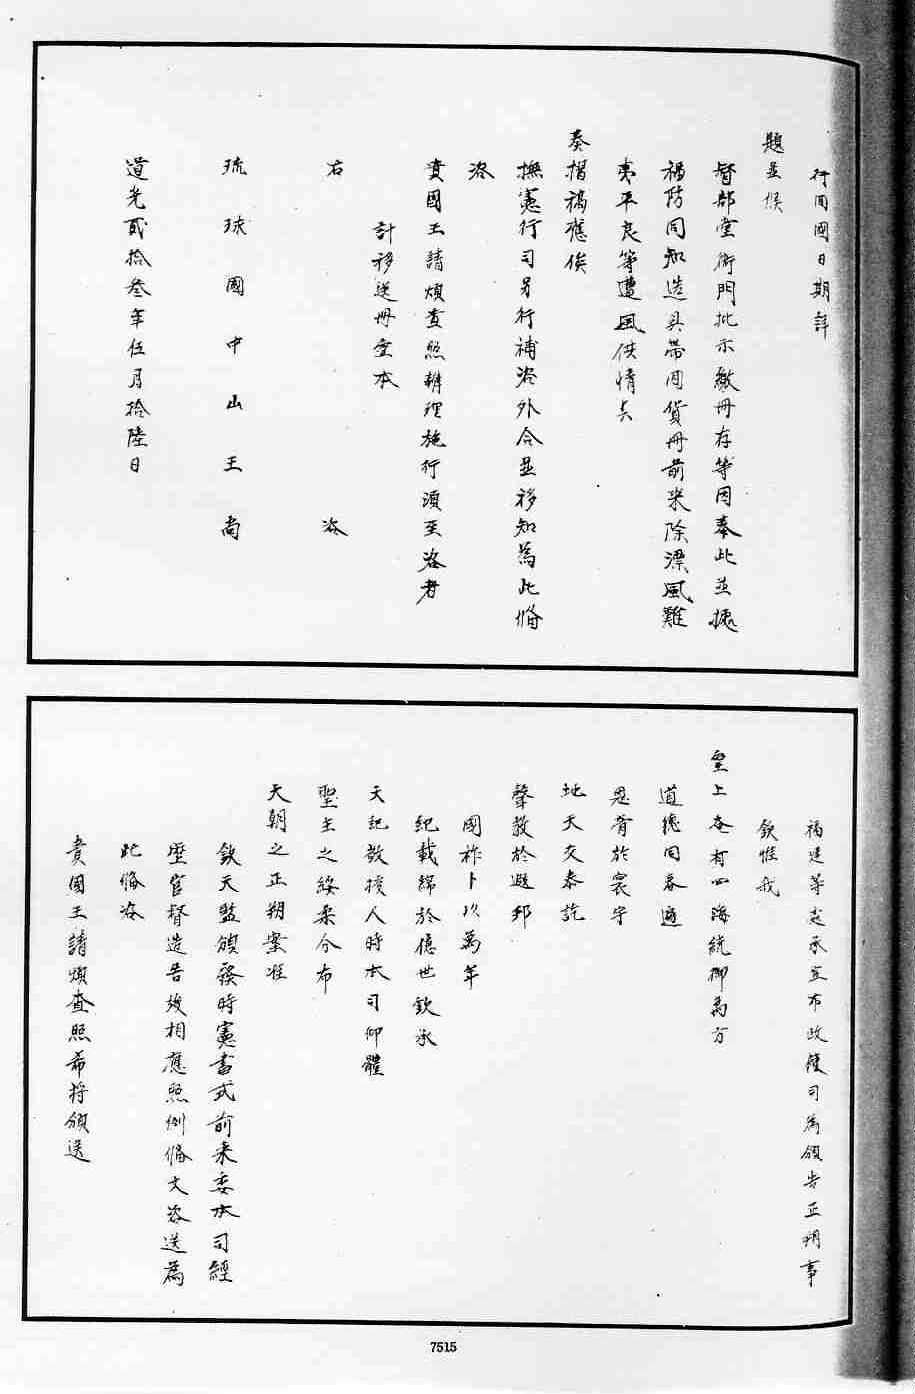 行回國日期詳
題並候
督部堂衙門批示繳冊存等因奉此並據
福防同知造具帶回貨冊前來除漂風難
夷平良等遭風供情具
奏摺稿應俟
撫憲行司另行補咨外合並移知為此備
咨
貴國王請煩查照辦理施行須至咨者
計移送冊壹本
右咨
琉球國中山王尚
道光貳拾叁年伍月拾陸日
福建等處承宣布政使司為頒告正朔事
欽惟我
皇上奄有四海統御萬方
道德同春適
恩膏於寰宇
地天交泰訖
聲教於遐邦
國祚卜以萬年
紀載綿於億世欽承
天記敬授人時本司仰體
聖主之綏柔分布
天朝之正朔案准
欽天監頒發時憲書式前來委本司經
歷官督造告竣相應照例備文咨送為
此備咨
貴國王請煩查照希將頒送
7515